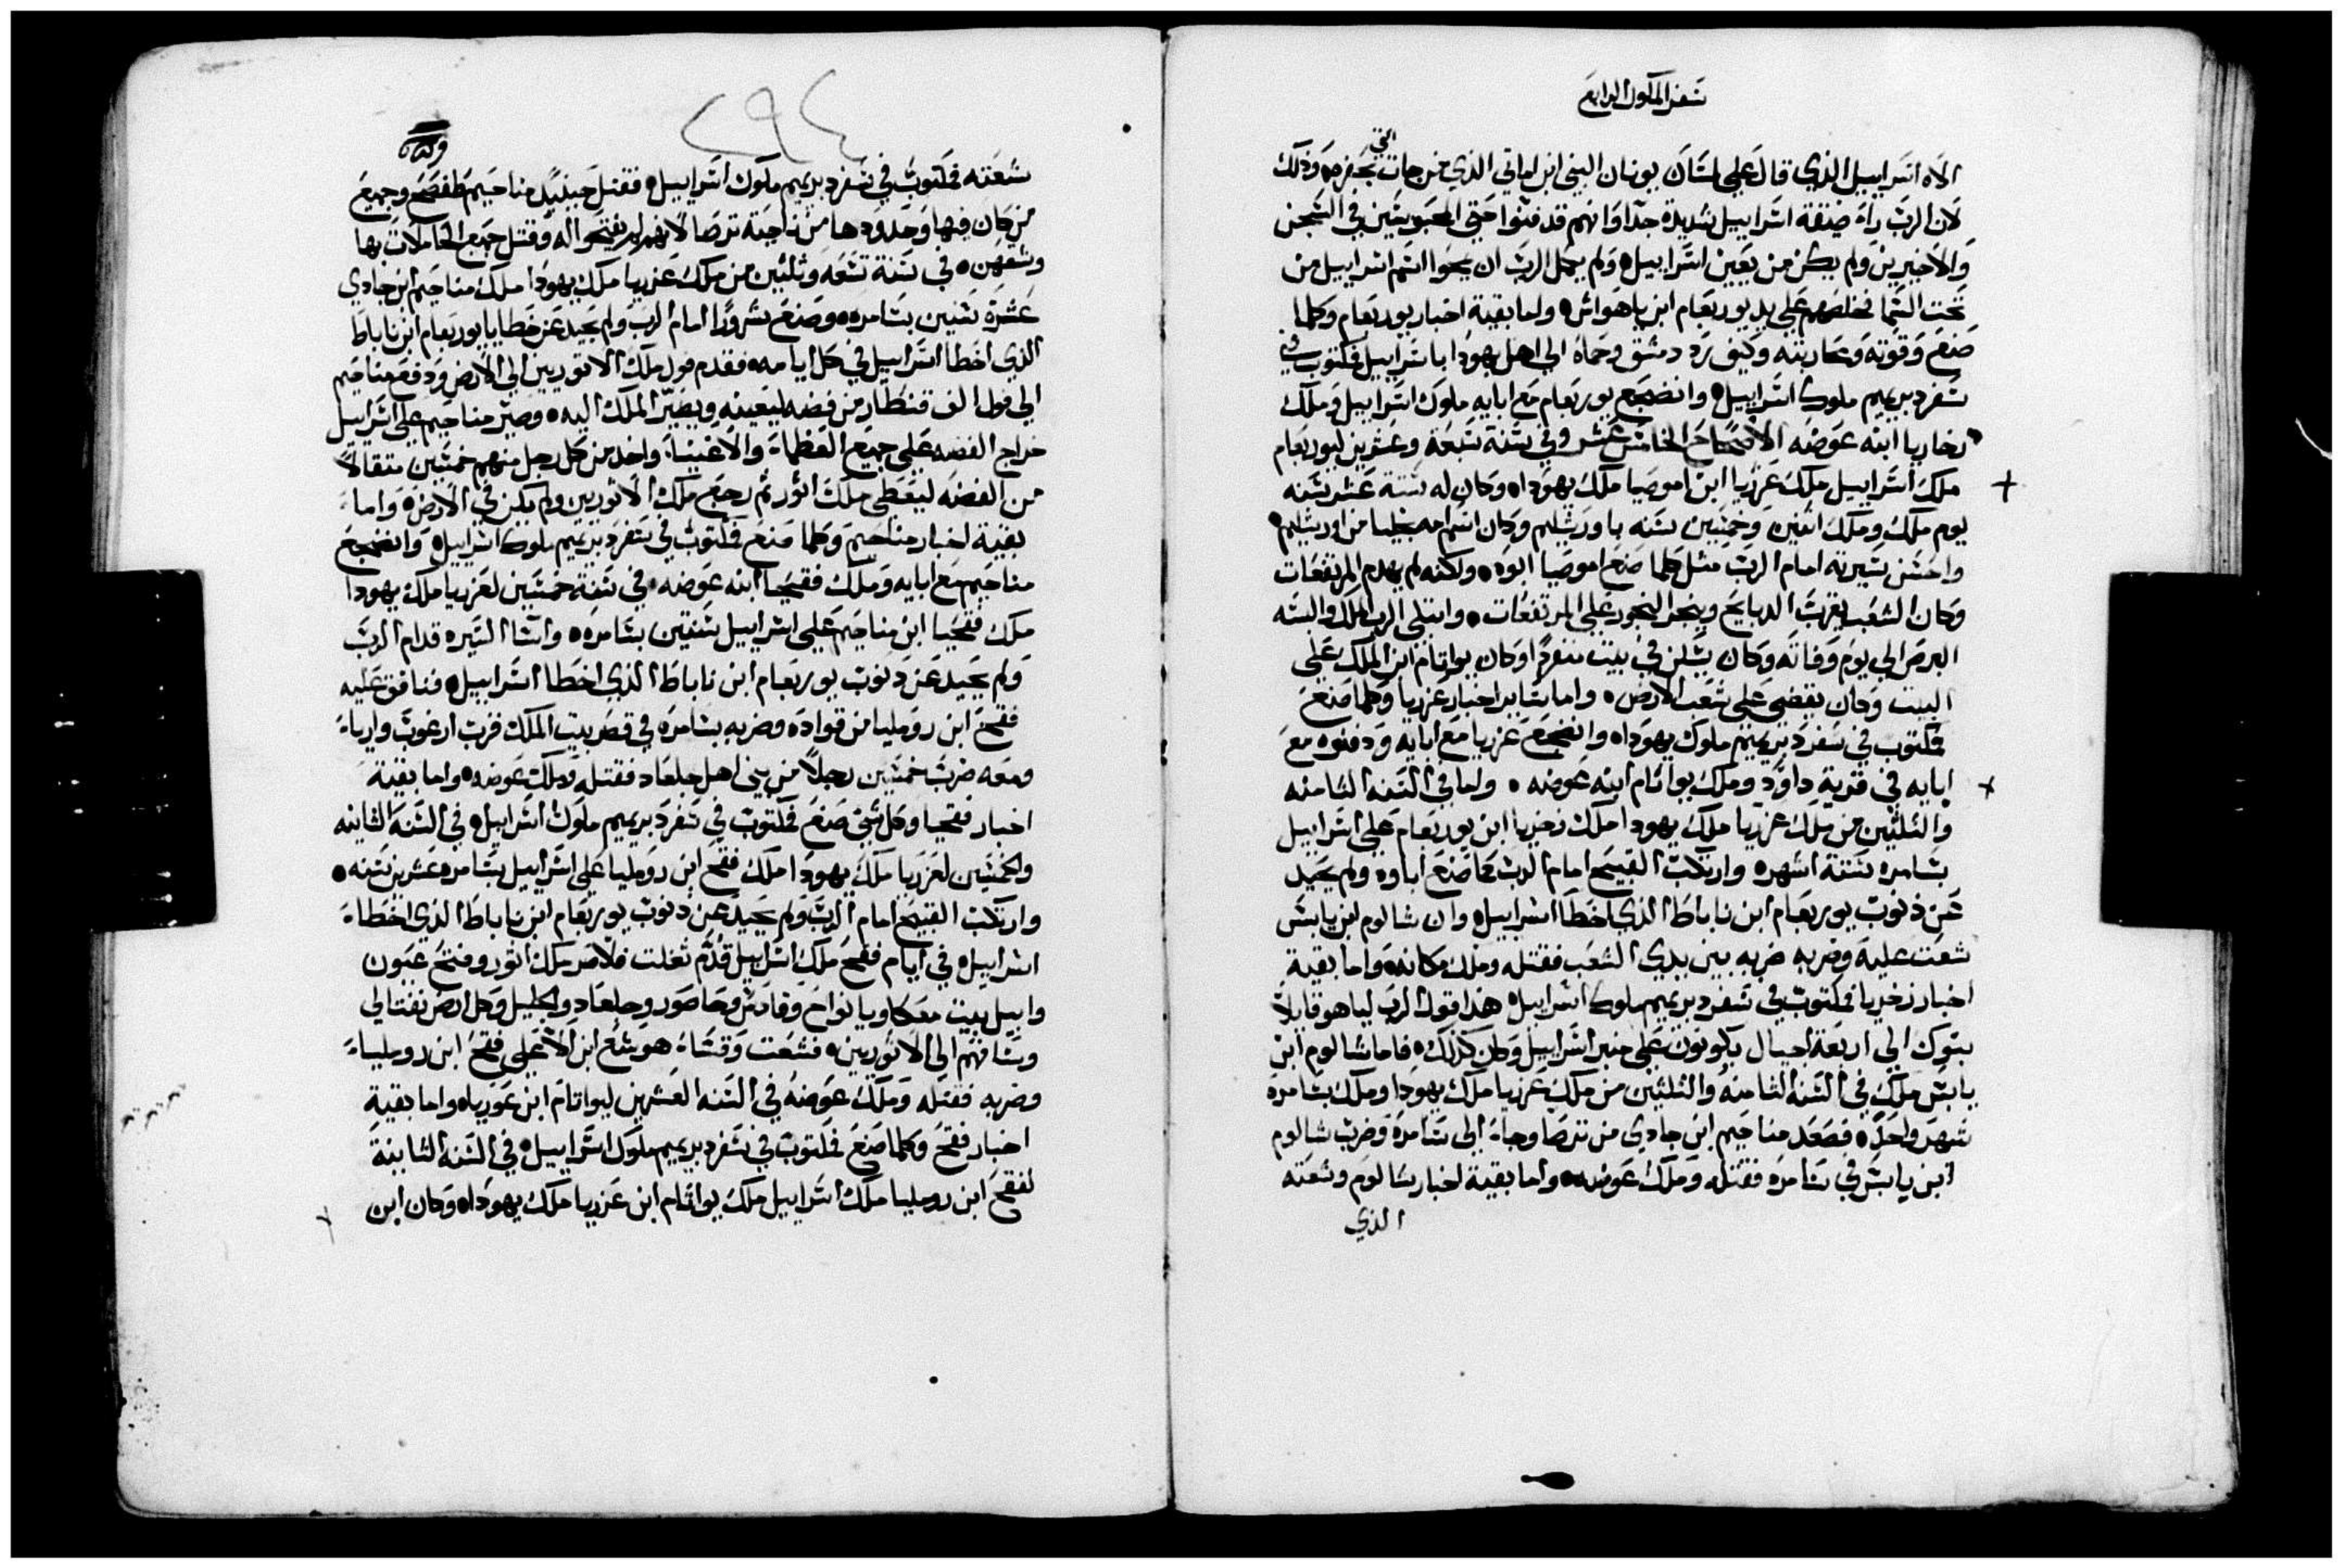 سفر الملوك الرابع
الاه اسراييل الذي قال على لسان يونان النبي ابن اماتي الذي من جات التي بحفره وذلك
لان الرب راء ضيقة اسراييل شديدة جدا وانهم قد فنوا حتي المحبوسين في السجن
والاخيرين ولم يكن من يعين اسراييل ولم يقل الرب ان يمحوا اسم اسراييل من
تحت السما فخلصهم على يد يوربعام ابن ياهواش واما بقية اخبار يوربعام وكلما
صنع وقوته ومحاربته وكيف رد دمشق وحماة الي اهل يهودا باسراييل فمكتوب في
سفر دبريميم ملوك اسراييل وانضجع يوربعام مع ابايه ملوك اسراييل وملك
زخاريا ابنه عوضه الاصحاح الخامس عشر وفي سنة سبعة وعشرين ليوربعام
ملك اسراييل ملك عزريا ابن اموصيا ملك يهودا وكان له ستة عشر سنه
يوم ملك وملك اثنين وخمسين سنه باورشليم وكان اسم امه يخليا من اورشليم
واحسن سيرته امام الرب مثل كلما صنع اموصيا ابوه ولكنه لم يهدم المرتفعات
وكان الشعب يقرب الدبايح ويبخر البخور على المرتفعات وابتلى الرب الملك والبسه
البرص الي يوم وفاته وكان يسكن في بيت منفردا وكان يواتام ابن الملك على
البيت وكان يقضي على شعب الارض واما ساير اخبار عزريا وكلما صنع
فمكتوب في سفر دبريميم ملوك يهودا وانضجع عزريا مع ابايه ودفنوه مع
ابايه في قرية داود وملك يواتام ابنه عوضه واما في السنه الثامنه
والثلثين من ملك عزريا ملك يهودا ملك زخريا ابن يوربعام على اسراييل
بسامره ستة اشهر وارتكب القبيح امام الرب كما صنع اباوه ولم يحيد
عن ذنوب يوربعام ابن ناباط الذي اخطا اسراييل وان شالوم ابن يابس
شعت عليه وضربه ضربه بين يدي الشعب فقتله وملك مكانه واما بقية
اخبار زخريا فمكتوب في سفر دبريميم ملوك اسراييل هذا قول الرب لياهو قايلا
بنوك الي اربعة اجيال يكونون على منبر اسراييل وكان كذلك فاما شالوم ابن
يابس ملك في السنه الثامنه والثلثين من ملك عزريا ملك يهودا وملك بسامره
شهر واحد فصعد مناحيم ابن جادي من ترصا وجاء الي سامره وضرب شالوم
ابن يابس في سامره فقتله وملك عوضه واما بقية اخبار شالوم وشعته
الذي
٢٩٤
شعته فمكتوب في سفر دبريميم ملوك اسراييل فقتل حينيد مناحيم طفصح وجميع
من كان فيها وحدودها من ناحية ترصا لانهم لم يفتحوا له وقتل جميع الحاملات بها
وشقهن في سنة تسعه وثلثين من ملك عزريا ملك يهودا ملك مناحيم ابن جادي
عشرة سنين بسامره وصنع شرورا امام الرب ولم يحيد عن خطايا يوربعام ابن ناباط
الذي اخطا اسراييل في كل ايامه فقدم فول ملك الاتوريين الي الارض ودفع مناحيم
الي فول الف قنطار من فضه ليعينه ويصير الملك اليه وصير مناحيم على اسراييل
خراج الفضه على جميع العظماء والاغنياء واخد من كل رجل منهم خمسين مثقالا
من الفضه ليعطي ملك اثور ثم رجع ملك الاثوريين ولم يكن في الارض واما
بقية اخبار مناحيم وكلما صنع فمكتوب في سفر دبريميم ملوك اسراييل وانضجع
مناحيم مع ابايه وملك فقحيا ابنه عوضه في سنة خمسين لعزريا ملك يهودا
ملك فقحيا ابن مناحيم على اسراييل سنتين بسامره واسا السيره قدام الرب
ولم يحيد عن دنوب يوربعام ابن ناباط الذي اخطا اسراييل فنافق عليه
فقح ابن رومليا من قواده وضربه بسامره في قصر بيت الملك قرب ارغوب وارياء
ومعه ضرب خمسين رجلا من بني اهل جلعاد فقتله وملك عوضه واما بقية
اخبار فقحيا وكل شي صنع فمكتوب في سفر دبريميم ملوك اسراييل في السنه الثانيه
والخمسين لعزريا ملك يهودا ملك فقح ابن رومليا على اسراييل بسامره عشرين سنه
وارتكب القبيح امام الرب ولم يحيد عن ذنوب يوربعام ابن ناباط الذي اخطاء
اسراييل في ايام فقح ملك اسراييل قدم تغلت فلاصر ملك اثور وفتح عيون
وابيل بيت معكا ويانواح وقادس وحاصور وجلعاد والجليل وكل ارض نفتالي
وساقهم الي الاثوريين فشعت وقساه هوشع ابن الا على فقح ابن رومليا
وضربه فقتله وملك عوضه في السنه العشرين ليواتام ابن عوزيا واما بقية
اخبار فقح وكلما صنع فمكتوب في سفر دبريميم ملوك اسراييل في السنه الثانية
لفقح ابن رومليا ملك اسراييل ملك يواتام ابن عزريا ملك يهودا وكان ابن